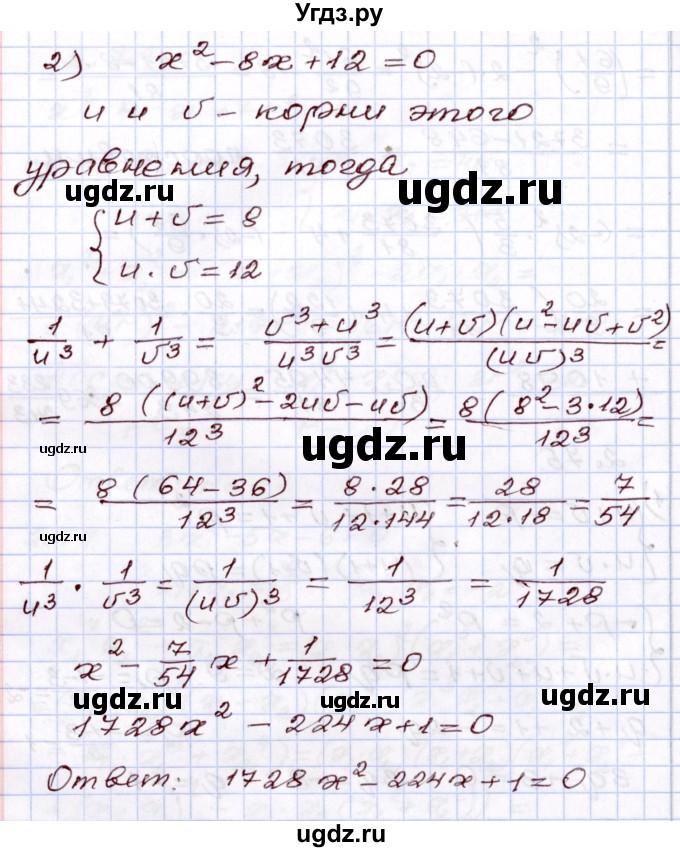 Угдз.ру
2) x² - 8x + 12 = 0
u и v - корни этого
уравнения, тогда
ugdz.ru
ugdz.ru
{ u + v = 8
{ u · v = 12
ugdz.ru
1/u³ + 1/v³ = (v³ + u³)/(u³v³) = ((u+v)(u² - uv + v²))/((uv)³) =
= (8((u+v)² - 2uv - uv))/12³ = (8(8² - 3·12))/12³ =
ugdz.ru
ugdz.ru
ugdz.ru
= (8(64 - 36))/12³ = (8·28)/(12·144) = 28/(12·18) = 7/54
ugdz.ru
1/u³ · 1/v³ = 1/(uv)³ = 1/12³ = 1/1728
x² - 7/54 x + 1/1728 = 0
ugdz.ru
ugdz.ru
ugdz.ru
1728x² - 224x + 1 = 0
Ответ: 1728x² - 224x + 1 = 0
ugdz.ru